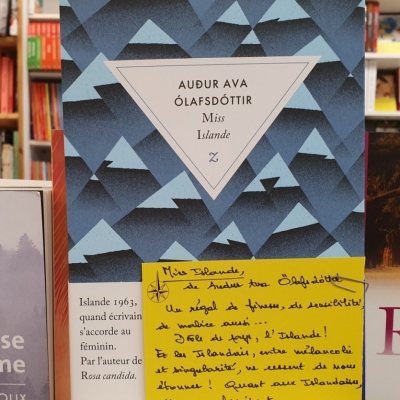 AUÐUR AVA
ÓLAFSDÓTTIR
Miss
Islande
Z
Islande 1963,
quand écrivain
s'accorde au
féminin.
Par l'auteur de
Rosa candida.
Miss Islande,
de Audur Ava Ólafsdóttir
Un régal de finesse, de sensibilité
de malice aussi...
Drôle de pays, l'Islande!
Et les Islandais, entre mélancolie
et singularité, ne cessent de nous
étonner! Quant aux Islandaises,
se
me
OUX